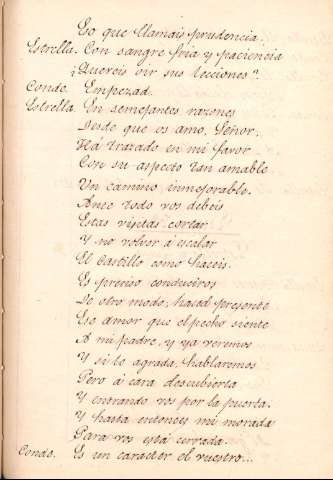 Eso que llamais prudencia.
Estrella. Con sangre fria y paciencia
¿Quereis oir sus lecciones?
Conde. Empezad.
Estrella. En semejantes razones
Desde que os amo, Señor,
Há trazado en mi favor
Con su aspecto tan amable
Un camino inmejorable.
Ante todo vos debeis
Estas visitas cortar
Y no volver á escalar
El Castillo como haceis.
Es preciso conduciros
De otro modo, haced presente
Ese amor que el pecho siente
A mi padre, y ya veremos
Y si le agrada, hablaremos
Pero á cara descubierta
Y entrando vos por la puerta.
Y hasta entonces mi morada
Para vos está cerrada.
Conde. Es un carácter el vuestro...